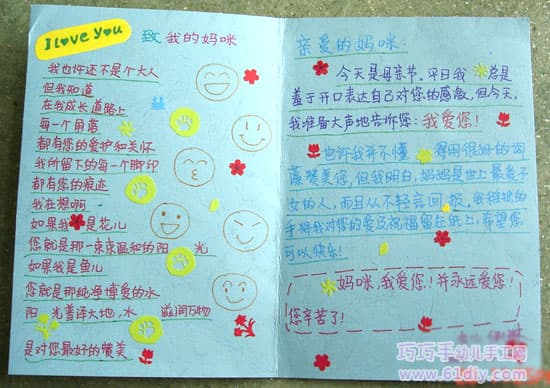 I Love You
致我的妈咪
我也许还不是个大人
但我知道
在我成长道路上
每一个角落
都有您的爱护和关怀
我所留下的每一个脚印
都有您的痕迹
我在想啊
如果我是花儿
您就是那一束束温和的阳光
如果我是鱼儿
您就是那纯净博爱的水
阳光普泽大地,水滋润万物
是对您最好的赞美
亲爱的妈咪:
今天是母亲节,平日我总是
羞于开口表达自己对您的感激,但今天,
我准备大声地告诉您:我爱您!
也许我并不懂得用很好的词
藻赞美您,但我明白,妈妈是世上最爱子
女的人,而且从不轻言回报,我稚拙的
手将我对您的爱及祝福留在纸上,希望您
可以快乐!
妈咪,我爱您!并永远爱您!
您辛苦了!
巧巧手幼儿手工网
www.61diy.com